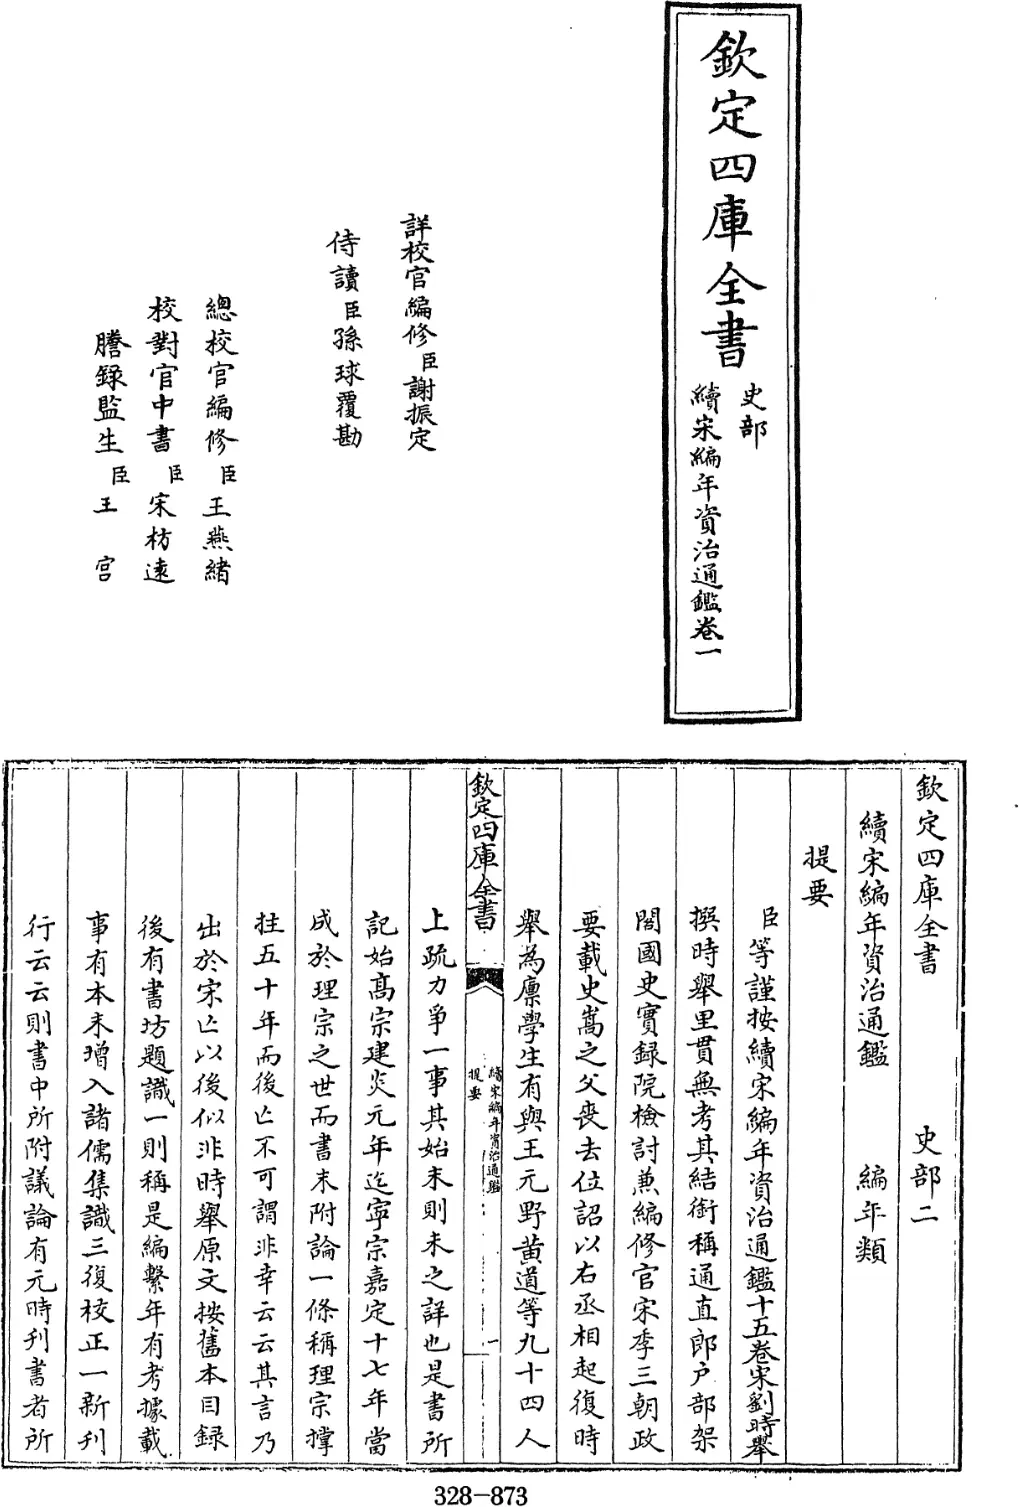 欽定四庫全書
史部
續宋編年資治通鑑卷一
詳校官編修臣謝振定
侍讀臣孫球覆勘
總校官編修臣王燕緒
校對官中書臣宋枋遠
謄錄監生臣王宫
欽定四庫全書 史部二
續宋編年資治通鑑 編年類
提要
臣等謹按續宋編年資治通鑑十五卷宋劉時舉
撰時舉里貫無考其結銜稱通直郎户部架
閣國史實録院檢討兼編修官宋季三朝政
要載史嵩之父喪去位詔以右丞相起復時
舉為廪學生有與王元野黄道等九十四人
欽定四庫全書
續宋編年資治通鑑
提要
一
上疏力爭一事其始末則未之詳也是書所
記始髙宗建炎元年迄寜宗嘉定十七年當
成於理宗之世而書末附論一條稱理宗撑
拄五十年而後亡不可謂非幸云云其言乃
出於宋亡以後似非時舉原文按舊本目録
後有書坊題識一則稱是編繫年有考據載
事有本末增入諸儒集議三復校正一新刋
行云云則書中所附議論有元時刋書者所
328-873